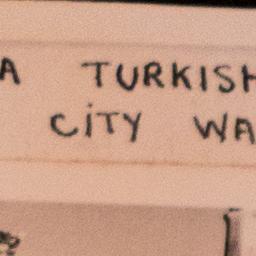 A TURKISH
CITY WA